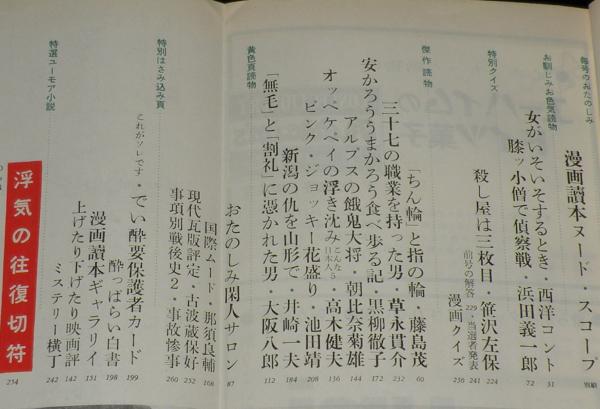 毎号のおたのしみ
漫画讀本ヌード・スコープ 別刷
お馴じみお色気読物
女がいそいそするとき・西洋コント 31
膝ッ小僧で偵察戦・浜田義一郎 72
特別クイズ
殺し屋は三枚目・笹沢左保 224
前号の解答 229・当選者発表 241
漫画クイズ 256
傑作読物
「ちん輪」と指の輪・藤島茂 60
三十七の職業を持った男・草永貫介 232
安かろううまかろう食べ歩る記・黒柳徹子 172
アルプスの餓鬼大将・朝比奈菊雄 144
オッペケペイの浮き沈み こんな日本人5・高木健夫 136
ピンク・ジョッキー花盛り・池田靖 208
新潟の仇を山形で・井崎一夫 184
「無毛」と「割礼」に憑かれた男・大阪八郎 112
黄色頁読物
おたのしみ閑人サロン 87
国際ムード・那須良輔 168
現代瓦版評定・古波蔵保好 252
事項別戦後史2・事故惨事 260
特別はさみ込み頁
これがソレです・でい酔要保護者カード 199
酔っぱらい白書 198
漫画讀本ギャラリイ 131
上げたり下げたり映画評 142
ミステリー横丁 242
特選ユーモア小説
浮気の往復切符
234